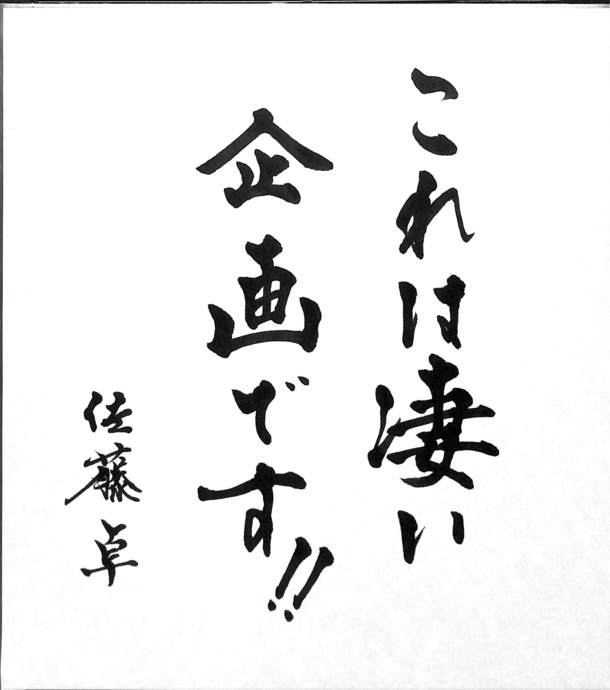 これは凄い
企画です!!
佐藤卓